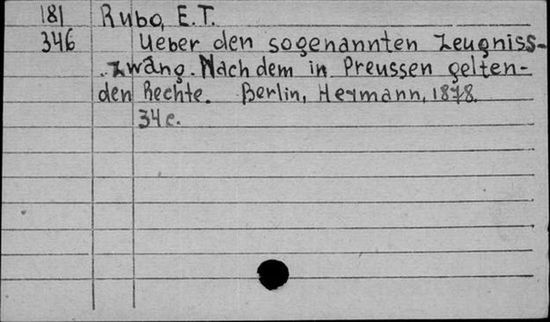 181 Rubo, E.T.
346 Ueber den sogenannten Zeugniss-
zwang. Nach dem in Preussen gelten-
den Rechte. Berlin, Heymann, 1878.
34 c.